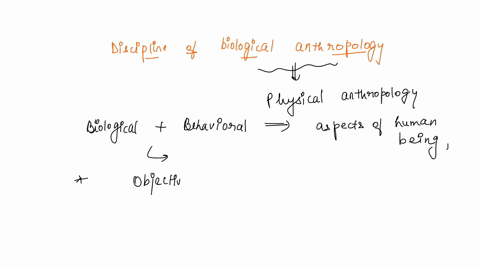 Discipline of biological anthropology
Physical anthropology
Biological + Behavioral ⟹ aspects of human
being,
* Objectiv